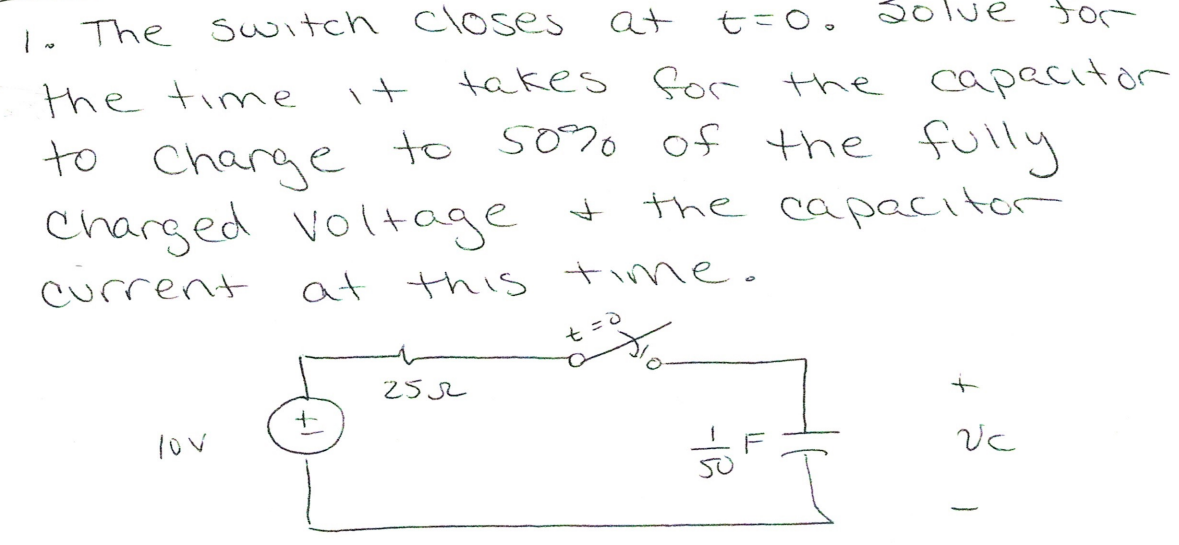 1. The switch closes at t=0. Solve for
the time it takes for the capacitor
to charge to 50% of the fully
charged voltage & the capacitor
current at this time.
t=0
25Ω
+
10V
+
−
1/50 F
vc
−